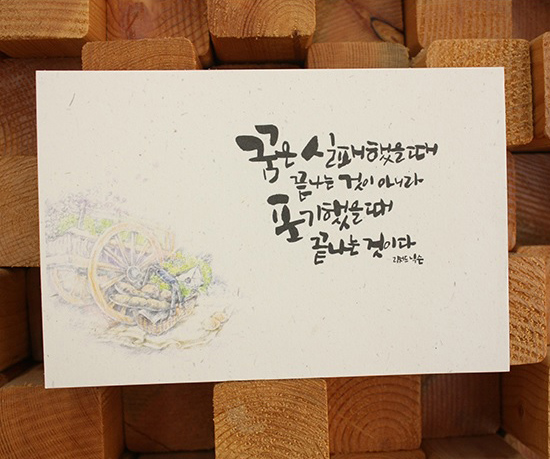 꿈은 실패했을때
끝나는 것이 아니라
포기했을때
끝나는 것이다
리처드닉슨